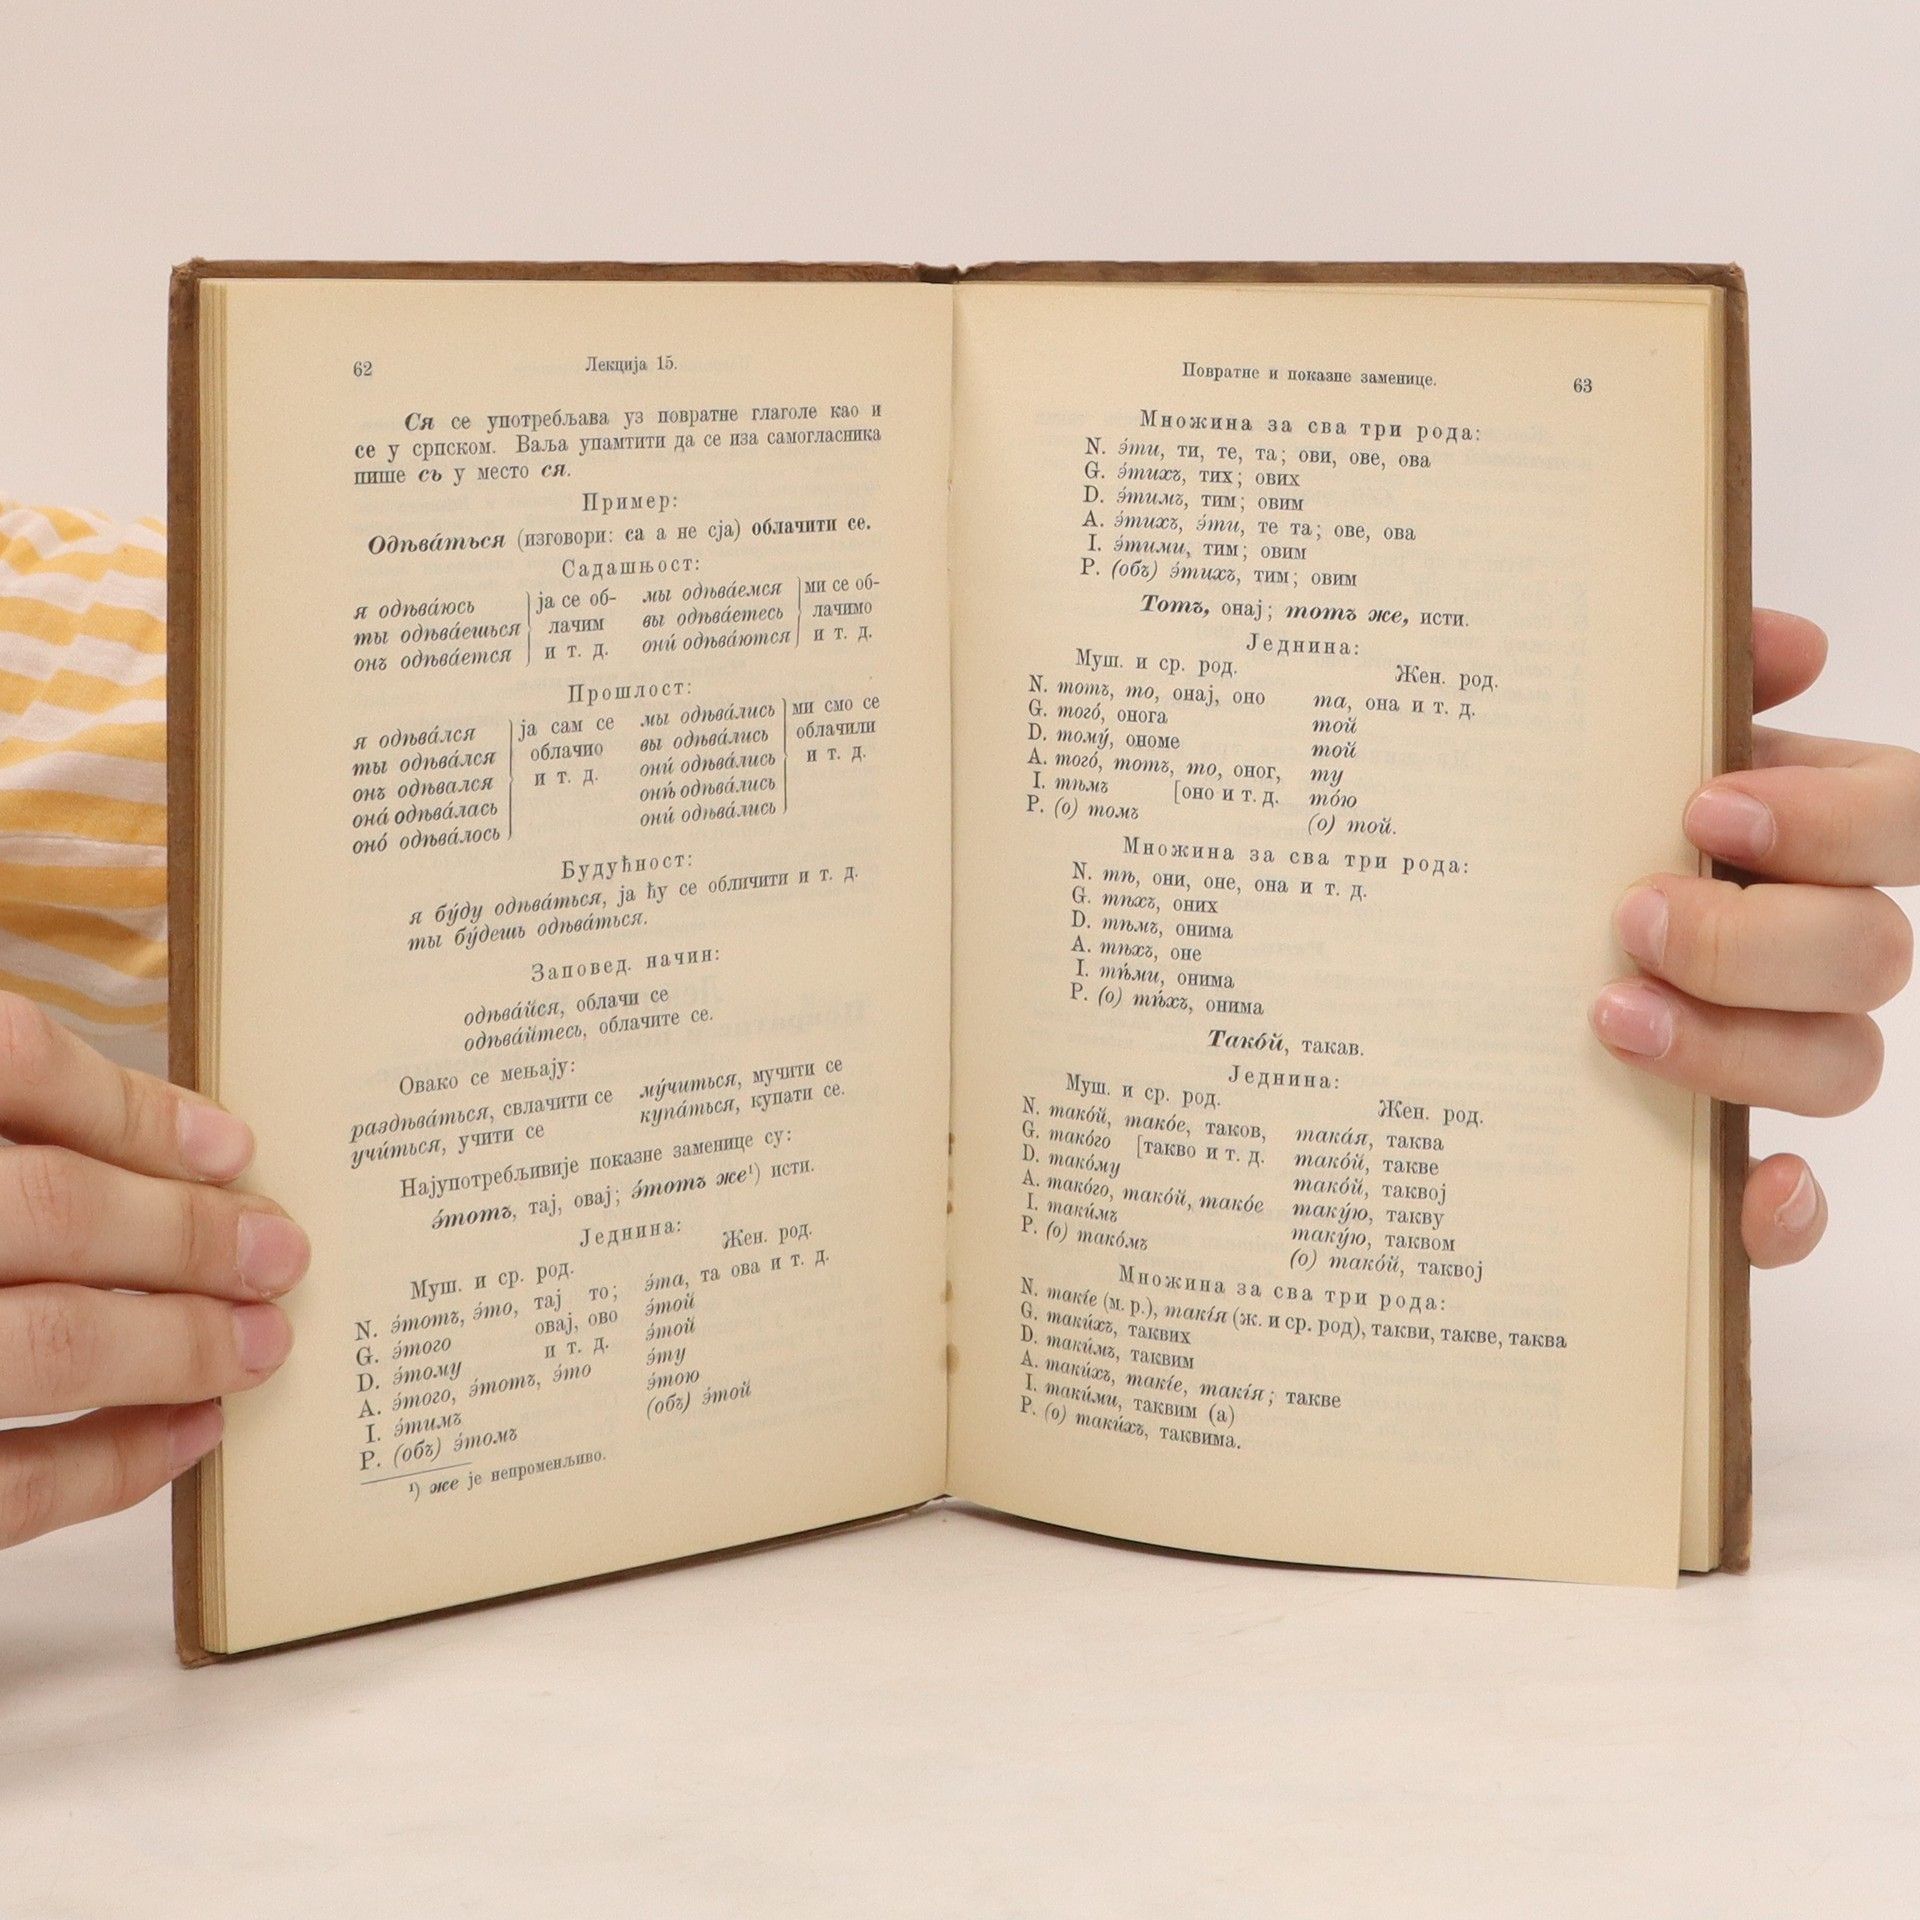 62
Лекција 15.
Ся се употребљава уз повратне глаголе као и
се у српском. Ваља упамтити да се иза самогласника
пише сь у место ся.
Пример:
Одѣва́ться (изговори: са а не сја) облачити се.
Садашњост:
я одѣва́юсь } ја се об- мы одѣва́емся } ми се об-
ты одѣва́ешься } лачим вы одѣва́етесь } лачимо
онъ одѣва́ется } и т. д. они́ одѣва́ются } и т. д.
Прошлост:
я одѣва́лся } ја сам се мы одѣва́лись } ми смо се
ты одѣва́лся } облачио вы одѣва́лись } облачили
онъ одѣвался } и т. д. они́ одѣва́лись } и т. д.
она́ одѣва́лась онѣ́ одѣва́лись
оно́ одѣва́лось они́ одѣва́лись
Будућност:
я бу́ду одѣва́ться, ја ћу се обличити и т. д.
ты бу́дешь одѣва́ться.
Заповед. начин:
одѣва́йся, облачи се
одѣва́йтесь, облачите се.
Овако се мењају:
раздѣва́ться, свлачити се му́читься, мучити се
учи́ться, учити се купа́ться, купати се.
Најупотребљивије показне заменице су:
э́тотъ, тај, овај; э́тотъ же¹) исти.
Једнина:
Муш. и ср. род. Жен. род.
N. э́тотъ, э́то, тај то; э́та, та ова и т. д.
G. э́того овај, ово э́той
D. э́тому и т. д. э́той
A. э́того, э́тотъ, э́то э́ту
I. э́тимъ э́тою
P. (объ) э́томъ (объ) э́той
¹) же је непроменљиво.
Повратне и показне заменице.
63
Множина за сва три рода:
N. э́ти, ти, те, та; ови, ове, ова
G. э́тихъ, тих; ових
D. э́тимъ, тим; овим
A. э́тихъ, э́ти, те та; ове, ова
I. э́тими, тим; овим
P. (объ) э́тихъ, тим; овим
Тотъ, онај; тотъ же, исти.
Једнина:
Муш. и ср. род. Жен. род.
N. тотъ, то, онај, оно та, она и т. д.
G. того́, онога той
D. тому́, ономе той
A. того́, тотъ, то, оног, ту
I. тѣмъ [оно и т. д. то́ю
P. (о) томъ (о) той.
Множина за сва три рода:
N. тѣ, они, оне, она и т. д.
G. тѣхъ, оних
D. тѣмъ, онима
A. тѣхъ, оне
I. тѣ́ми, онима
P. (о) тѣ́хъ, онима
Тако́й, такав.
Једнина:
Муш. и ср. род. Жен. род.
N. тако́й, тако́е, таков, така́я, таква
G. тако́го [такво и т. д. тако́й, такве
D. тако́му тако́й, таквој
A. тако́го, тако́й, тако́е таку́ю, такву
I. таки́мъ таку́ю, таквом
P. (о) тако́мъ (о) тако́й, таквој
Множина за сва три рода:
N. такі́е (м. р.), такі́я (ж. и ср. род), такви, такве, таква
G. таки́хъ, таквих
D. таки́мъ, таквим
A. таки́хъ, такі́е, такі́я; такве
I. таки́ми, таквим (а)
P. (о) таки́хъ, таквима.